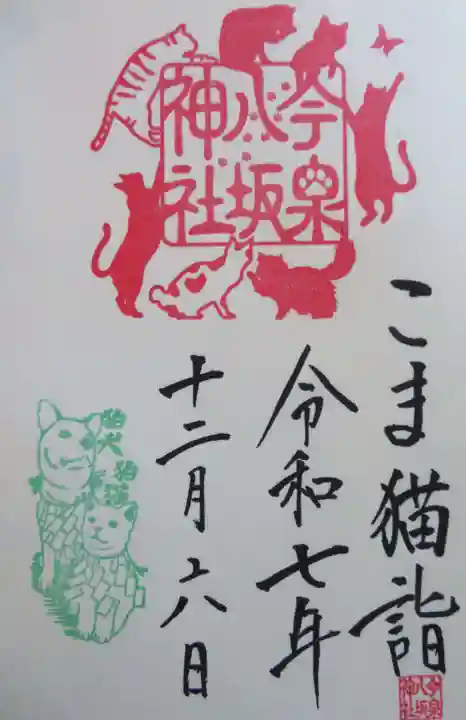 今泉
八坂
神社
こま猫詣
令和七年
十二月六日
狛犬
狛猫
今泉
八坂
神社